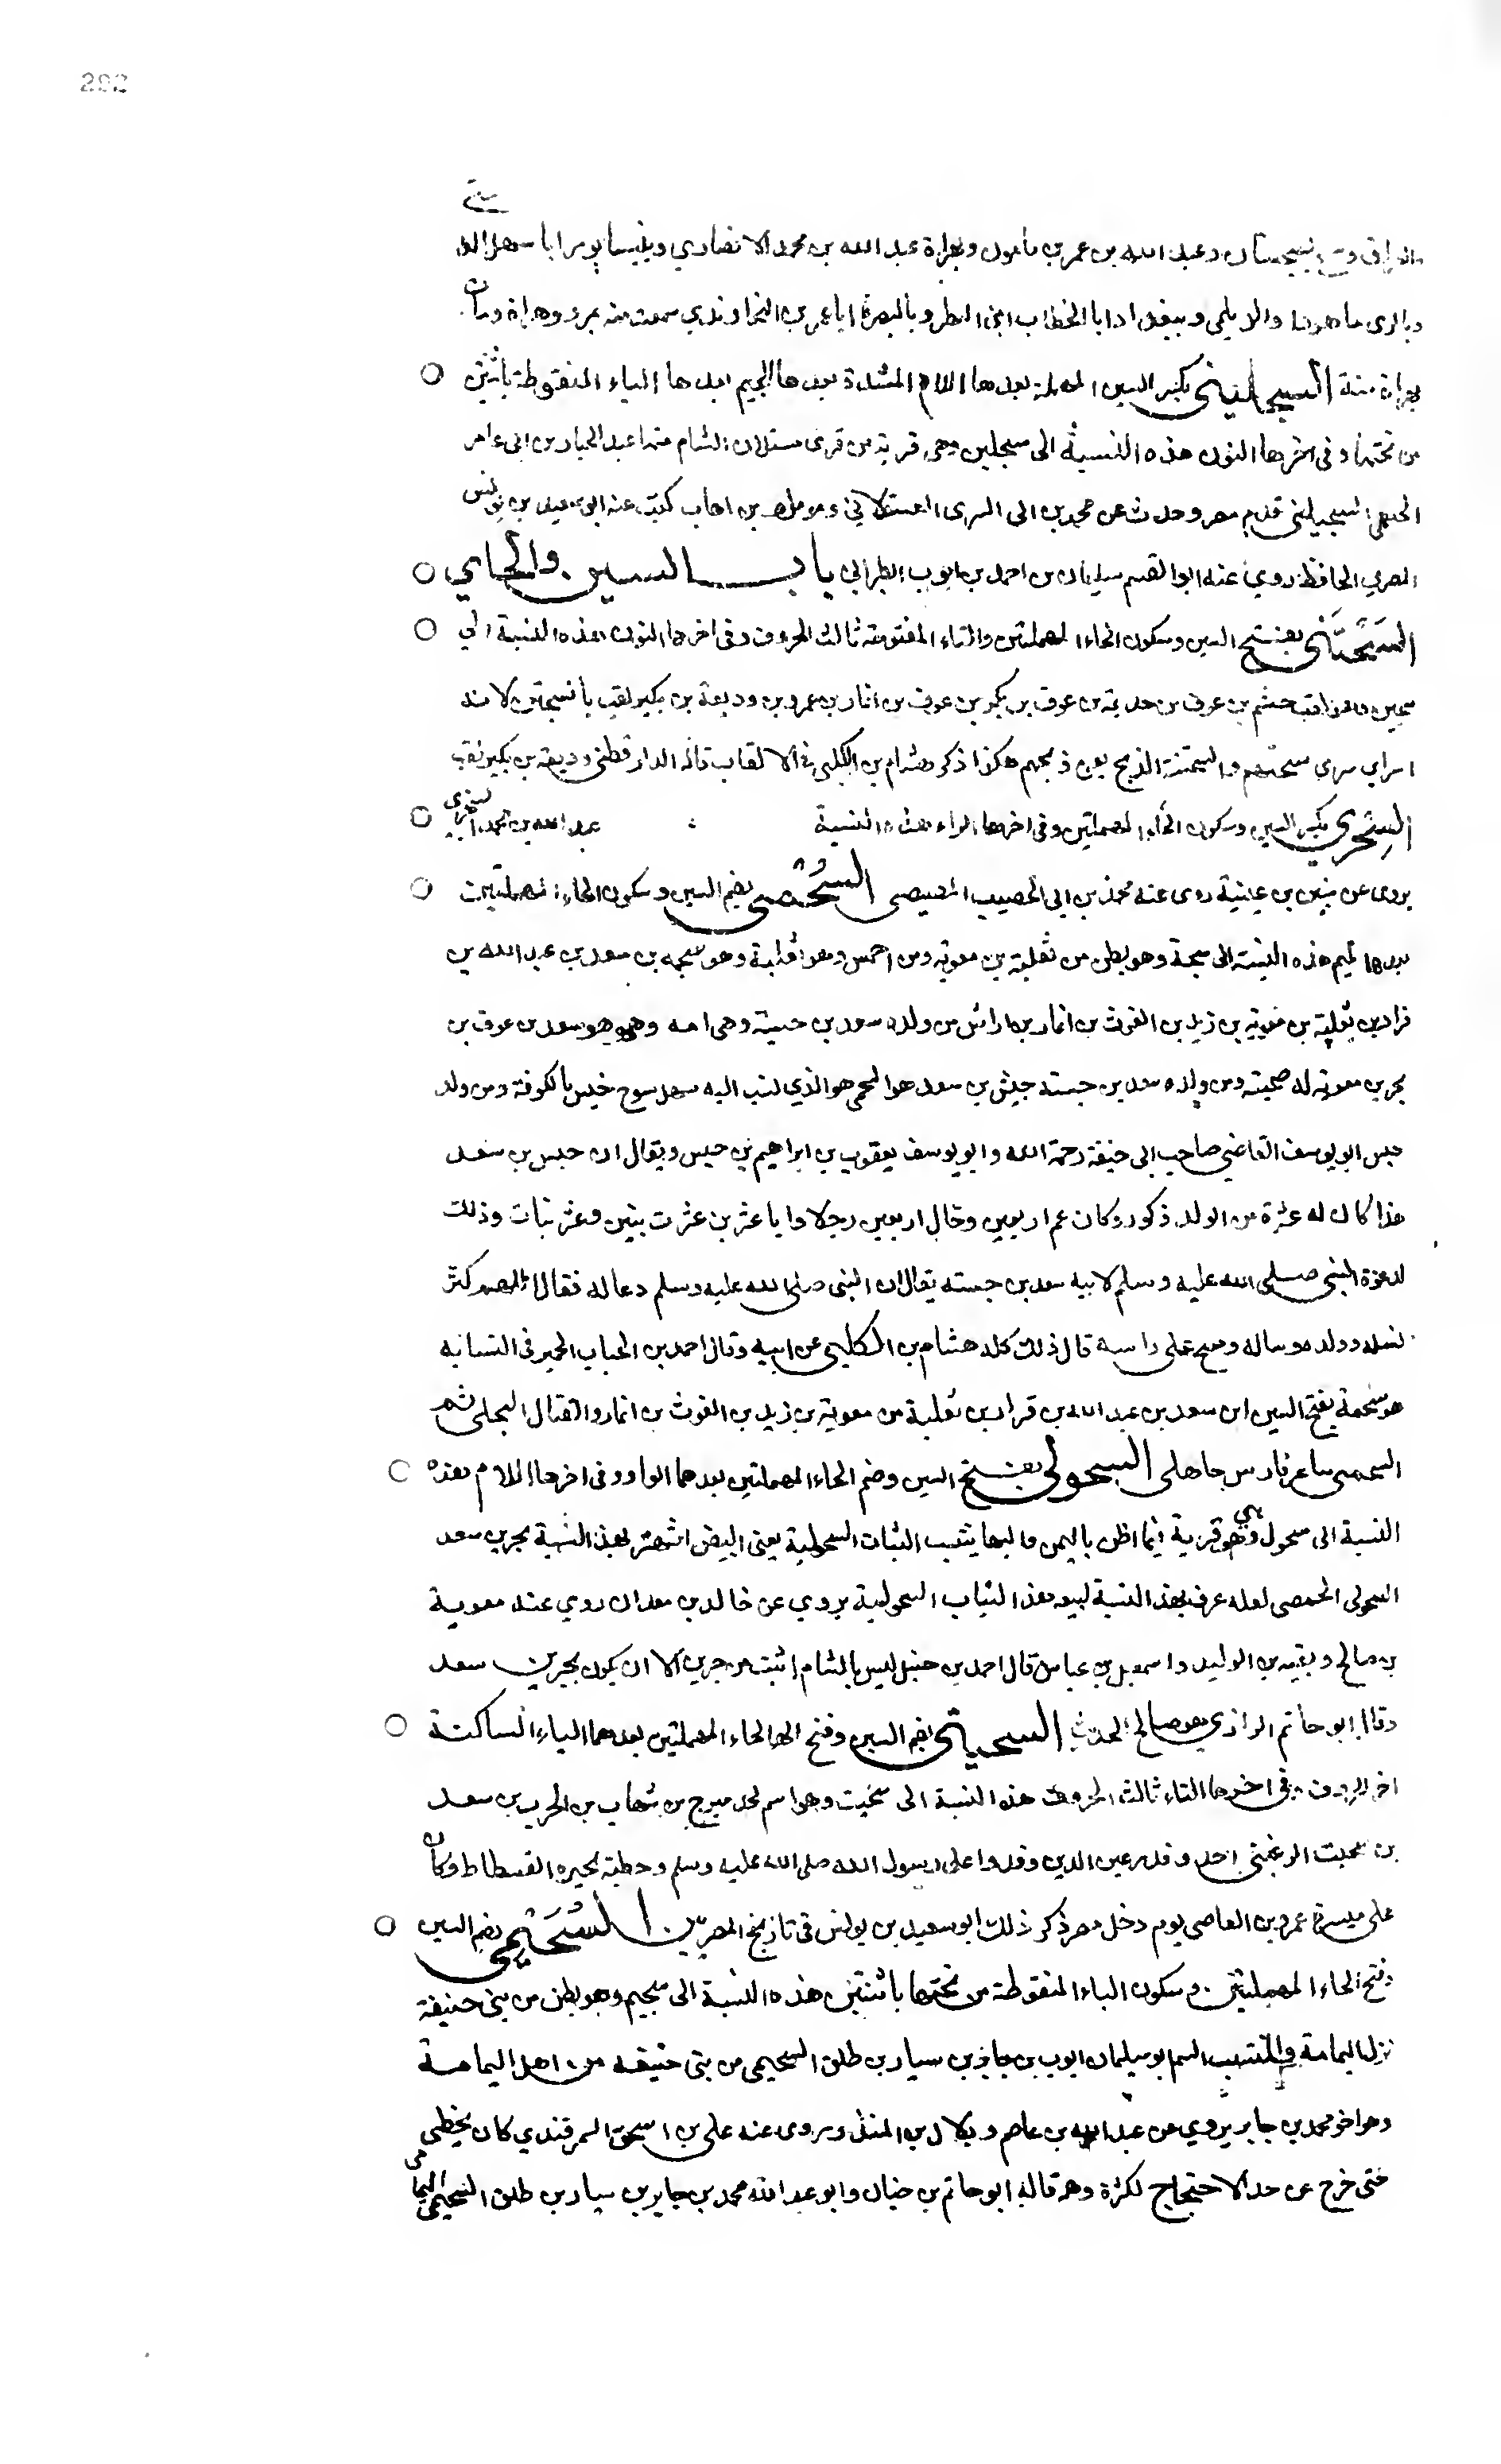 292
بسجستان وعبد الله بن عمر بن مامون وبهراة عبد الله بن محمد الانصاري وبنيسابور ابا سهل
وبالرى والديلمي وببغداد ابا الخطاب ابن البطر وبالبصرة ابا عمر بن النهاوندي سمعت منه بمرو وهراة ومات
بهراة سنة السجلينى بكسر السين المهملة بعدها اللام المشددة بعدها الجيم بعدها الياء المنقوطة باثنتين
من تحتها وفى اخرها النون هذه النسبة الى سجلين وهى قرية من قرى عسقلان الشام منها عبد الجبار بن ابى عامر
السجيلنى قدم مصر وحدث عن محمد بن ابى السرى العسقلاني ومومل بن اهاب كتب عنه ابو سعيد بن يونس
المصري الحافظ روي عنه ابو القسم سليمان بن احمد بن ايوب الطبراني باب السين والحاي
السَحتَنى بفتح السين وسكون الحاء المهملتين والتاء المفتوحة ثالث الحروف وفى اخرها النون هذه النسبة الي
جشم بن عوف بن حديمة بن عوف بن بكر بن عوف بن انمار بن عمرو بن وديعة بن بكير لقب لانه
اسر اسرى سحتنهم والسحتنة الذبح يعنى ذبحهم هكذا ذكر هشام بن الكلبى فى الالقاب قاله الدارقطنى وديعة بن بكير لقب
السِحرى بكسر السين وسكون الحاء المهملتين وفى اخرها الراء هذه النسبة عبد الله بن محمد السحرى
يروى عن بن عيينة روى عنه محمد بن ابى الخصيب المصيصى السُحْمى بضم السين وسكون الحاء المهملتين
بعدها الميم هذه النسبة الى سحمة وهو بطن من ثعلبة بن معوية ومن احمس وهو سحمه بن سعد بن عبد الله بن
قراد بن ثعلبة بن معوية بن زيد بن الغوث بن انمار بن اراش من ولده سعد بن حبتة وهى امه وهو سعد بن عوف بن
بجر بن معوية له صحبته ومن ولده سعد بن حبته خنيس بن سعد هو السحمى هو الذي نسب اليه سهل سوج خنيس بالكوفة ومن ولد
حبس ابو يوسف القاضى صاحب ابى حنيفة رحمة الله وابو يوسف يعقوب بن ابراهيم بن حبس ويقال ان حبس بن سعد
هذا كان له عشرة من الولد ذكور وكان عم اربعين وخال اربعين رجلا وابا عشرين عشرة بنين وعشر بنات وذلك
لدعوة النبى صلى الله عليه وسلم لابيه سعد بن حبسته يقال ان النبى صلى الله عليه وسلم دعا له فقال اللهم كثر
نسله وولده وماله ومسح على راسه قال ذلك كله هشام بن الكلبى عن ابيه وقال احمد بن الحباب الحميرى النسابه
هو سحمة بفتح السين ابن سعد بن عبد الله بن قراد بن ثعلبة بن معوية بن زيد بن الغوث بن انمار والقتال البجلى ثم
السحمى شاعر فارس جاهلى السحولى بفتح السين وضم الحاء المهملتين بعدهما الواو وفى اخرها اللام هذه
النسبة الى سحول وهى قرية فيما اظن باليمن واليها ينسب الثياب السحولية يعنى البيض اشتهر بهذه النسبة بحير بن سعد
السحولى الحمصى لعله عرف بهذه النسبة لبيعه هذه الثياب السحولية يروي عن خالد بن معدان روي عنه معوية
بن صالح وبقيه بن الوليد واسمعيل بن عياش قال احمد بن حنبل ليس بالشام اثبت من جرير الا ان يكون بحير بن سعد
وقال ابو حاتم الرازي هو صالح الحديث السحيتى بضم السين وفتح الحاء المهملتين بعدهما الياء الساكنة
اخر الحروف وفى اخرها التاء ثالث الحروف هذه النسبة الى سحيت وهو اسم لجد مبرح بن شهاب بن الحرث بن سعد
بن سحيت الرعينى احد وفد رعين الذين وفدوا على رسول الله صلى الله عليه وسلم وخطته بجيزة الفسطاط وكان
على ميسرة عمرو بن العاصى يوم دخل مصر ذكر ذلك ابو سعيد بن يونس فى تاريخ المصريين السُحَيمى بضم السين
وفتح الحاء المهملتين وسكون الياء المنقوطة من تحتها باثنتين هذه النسبة الى سحيم وهو بطن من بنى حنيفة
نزل اليمامة والمنتسب اليهم ابو سليمان ايوب بن جابر بن سيار بن طلق السحيمى من بنى حنيفه من اهل اليمامة
وهو اخو محمد بن جابر يروي عن عبد الله بن عاصم وبلال بن المنذر يروى عنه على بن اسحق السمرقندي كان يخطى
حتى خرج عن حد الاحتجاج لكثرة وهمه قاله ابو حاتم بن حبان وابو عبد الله محمد بن جابر بن سيار بن طلق السحيمى اليمامى